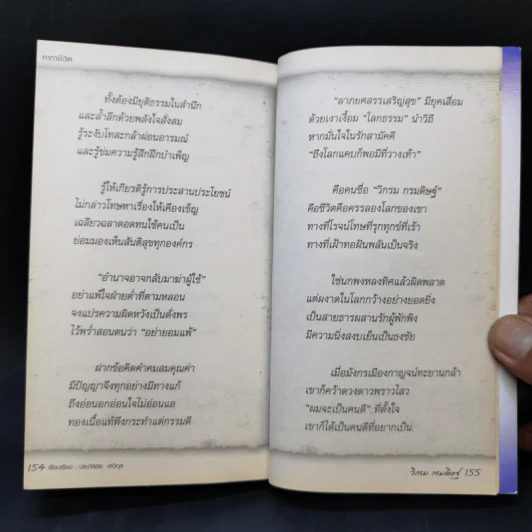 คาถาชีวิต
ทั้งต้องมียุติธรรมในสำนึก
และล้ำลึกด้วยพลังใจสั่งสม
รู้ระงับโทสะกล้าผ่อนอารมณ์
และรู้ข่มความรู้สึกฝึกบำเพ็ญ
รู้ให้เกียรติรู้การประสานประโยชน์
ไม่กล่าวโทษหาเรื่องให้เคืองเข็ญ
เฉลียวฉลาดอดทนใช้คนเป็น
ย่อมมองเห็นสันติสุขทุกองค์กร
"อำนาจอาจกลับมาฆ่าผู้ใช้"
อย่าแพ้ใจฝ่ายต่ำที่ตามหลอน
จงแปรความผิดหวังเป็นดั่งพร
ไว้พร่ำสอนตนว่า "อย่ายอมแพ้"
ฝากข้อคิดคำคมสมคุณค่า
มีปัญญาจึงทุกอย่างมีทางแก้
ถึงอ่อนอกอ่อนใจไม่อ่อนแอ
ทองเนื้อแท้พึงกระทำแต่กรรมดี
154 เรียบเรียง :
"ลาภยศสรรเสริญสุข" มียุคเสื่อม
ด้วยเงาเงื้อม "โลกธรรม" นำวิถี
หากมั่นใจในรักสามัคคี
"ถึงโลกแคบก็พอมีที่วางเท้า"
คือคนชื่อ "วิกรม กรมดิษฐ์"
คือชีวิตคือครรลองโลกของเขา
ทางที่โรจน์โทษที่รุกทุกข์ที่เร้า
ทางที่เฝ้าทอฝันพลันเป็นจริง
ใช่นกพงหลงทิศแล้วผิดพลาด
แต่ผงาดในโลกกว้างอย่างยอดยิ่ง
เป็นสายธารผสานรักผู้พักพิง
มีความนิ่งสงบเย็นเป็นธงชัย
เมื่อมังกรเมืองกาญจน์ทะยานกล้า
เขาก็คว้าดวงดาวพราวไสว
"ผมจะเป็นคนดี" ที่ตั้งใจ
เขาก็ได้เป็นคนดีที่อยากเป็น
วิกรม กรมดิษฐ์ 155